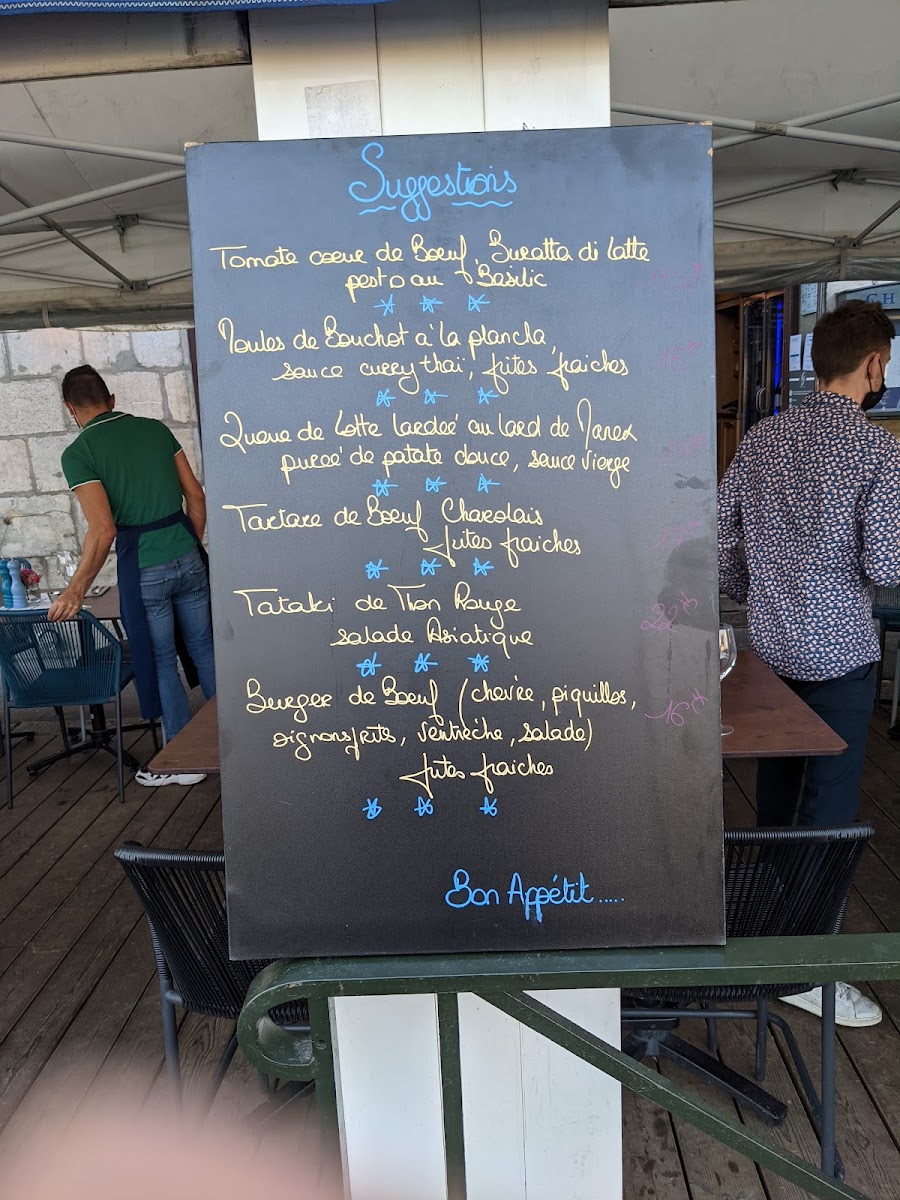 Suggestions
Tomate coeur de Boeuf, Buratta di Latte
pesto au Basilic
Moules de Bouchot à la plancha,
sauce curry thaï, frites fraiches
Queue de Lotte lardeé au lard de
pureé de patate douce, sauce vierge
Tartare de Boeuf Charolais
frites fraiches
Tataki de Thon Rouge
salade Asiatique
22
Burger de Boeuf (chevre, piquillos,
16
oignons frits, ventrèche, salade)
frites fraiches
Bon Appétit.....
CH